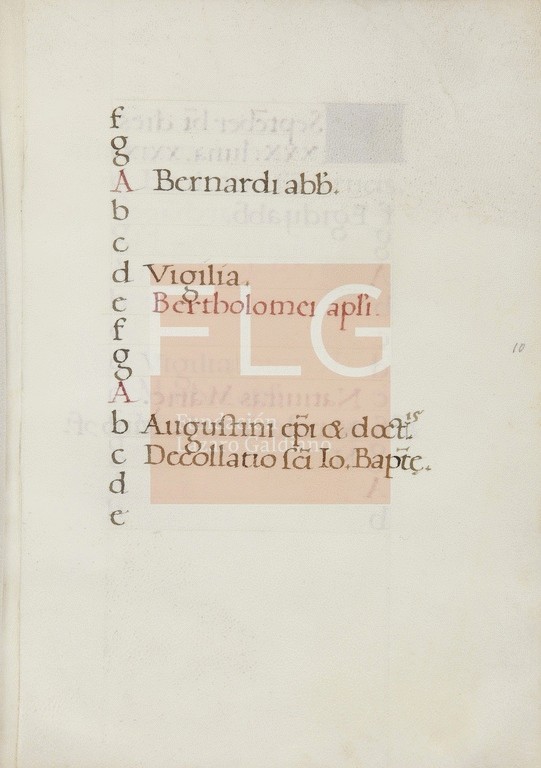 f
g
A Bernardi abb̄.
b
c
d Vigilia.
e Bertholomei apl̄i.
f
g
A
b Augustini ep̄i & doct.is
c Decollatio sc̄i Io. Bapt̄ę.
d
e
10
FLG
Fundación
Lázaro Galdiano